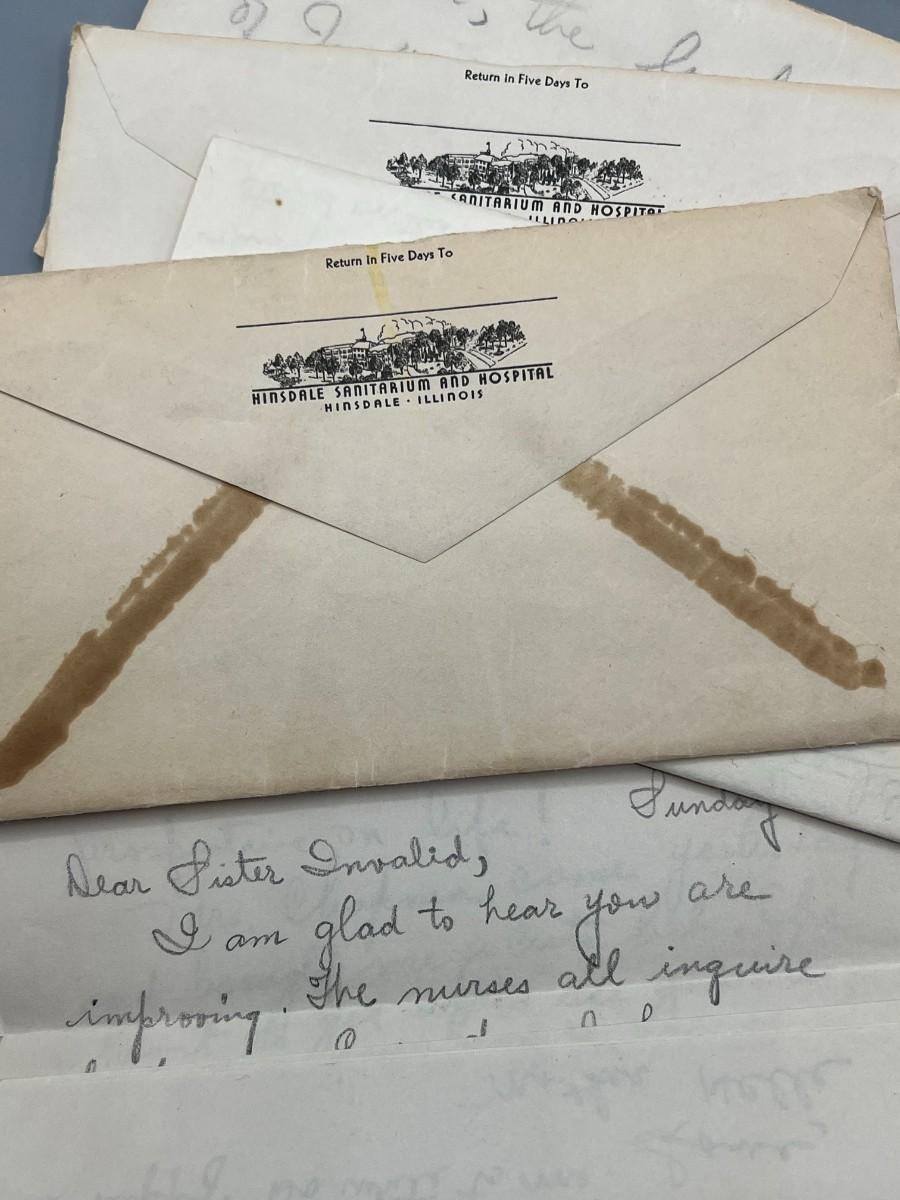 is the
Return in Five Days To
SANITARIUM AND HOSPITAL
Return in Five Days To
HINSDALE SANITARIUM AND HOSPITAL
HINSDALE · ILLINOIS
Sunday
Dear Sister Invalid,
I am glad to hear you are
improving. The nurses all inquire